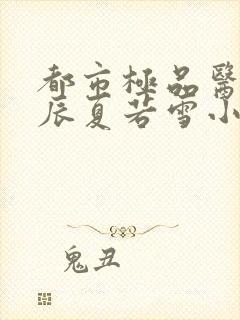 都市極品醫
辰夏若雪小
鬼丑